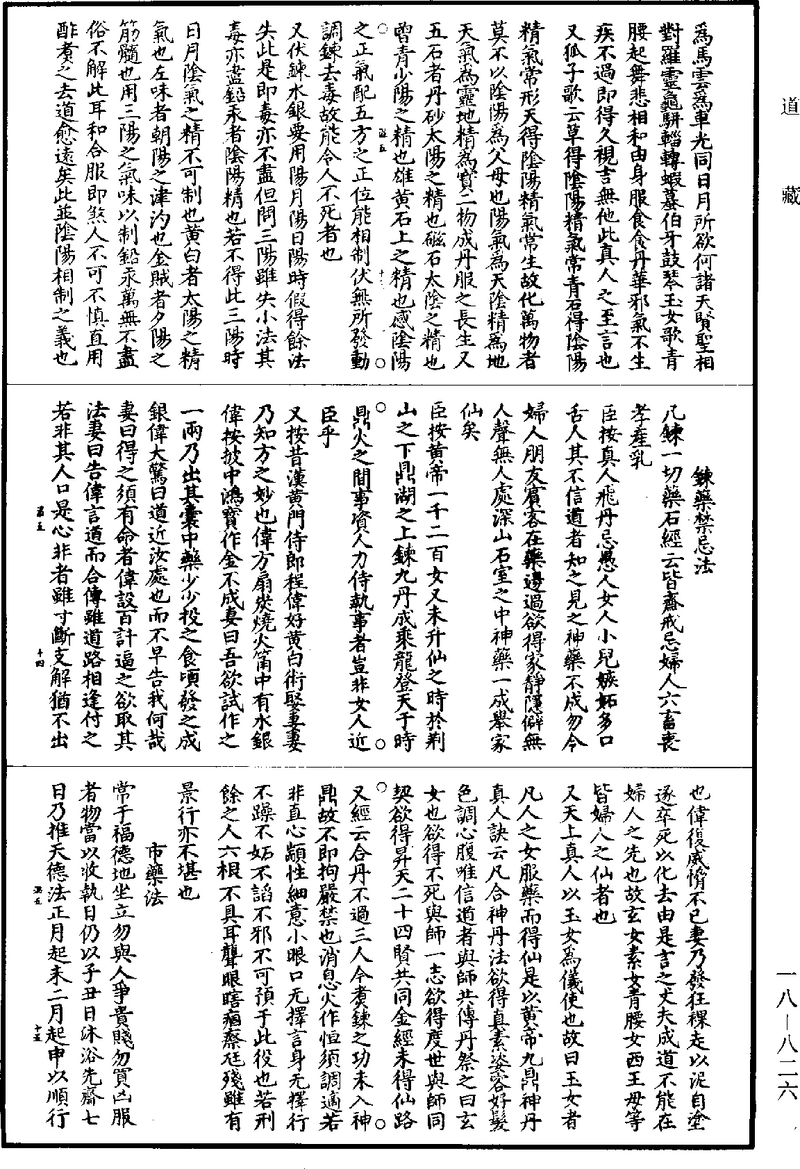 道藏
爲馬雲爲車光同日月所欲何諸天賢聖相
對羅靈龜駢輜轉蝦蟇伯牙鼓琴玉女歌青
腰起舞悲相和由身服食食丹華邪氣不生
疾不過即得久視言無他此真人之至言也
又狐子歌云草得陰陽精氣常青石得陰陽
精氣常形天得陰陽精氣常生故化萬物者
莫不以陰陽爲父母也陽氣爲天陰精爲地
天氣爲靈地精爲寶二物成丹服之長生又
五石者丹砂太陽之精也磁石太陰之精也
曾青少陽之精也雄黄石上之精也感陰陽
之正氣配五方之正位能相制伏無所發動
調鍊去毒故能令人不死者也
又伏鍊水銀要用陽月陽日陽時假得餘法
失此是即毒亦不盡但問三陽雖失小法其
毒亦盡鉛汞者陰陽精也若不得此三陽時
日月陰氣之精不可制也黄白者太陽之精
氣也左味者朝陽之津汋也金賊者夕陽之
筋髓也用三陽之氣味以制鉛汞萬無不盡
俗不解此耳和合服即煞人不可不慎直用
酢煮之去道愈遠矣此並陰陽相制之義也
鍊藥禁忌法
凡鍊一切藥石經云皆齋戒忌婦人六畜喪
孝產乳
臣按真人飛丹忌愚人女人小兒嫉妬多口
舌人其不信道者知之見之神藥不成勿令
婦人朋友賓客在藥邊過欲得家靜隱僻無
人聲無人處深山石室之中神藥一成舉家
仙矣
臣按黄帝一千二百女又未升仙之時於荆
山之下鼎湖之上鍊九丹成乘龍登天于時
鼎火之間事資人力侍執事者豈非女人近
臣乎
又按昔漢黄門侍郎程偉好黄白術娶妻妻
乃知方之妙也偉方扇炭燒火筩中有水銀
偉按披中鴻寶作金不成妻曰吾欲試作之
一兩乃出其囊中藥少少投之食頃發之成
銀偉大驚曰道近汝處也而不早告我何哉
妻曰得之須有命者偉設百計逼之欲取其
法妻曰告偉言道而合傳雖道路相逢付之
若非其人口是心非者雖寸斷支解猶不出
也偉復威慴不已妻乃發狂裸走以泥自塗
遂卒死以化去由是言之丈夫成道不能在
婦人之先也故玄女素女青腰女西王母等
皆婦人之仙者也
又天上真人以玉女爲儀使也故曰玉女者
凡人之女服藥而得仙是以黄帝九鼎神丹
真人訣云凡合神丹法欲得真素姿容好髮
色調心腹唯信道者與師共傳丹祭之曰玄
女也欲得不死與師一志欲得度世與師同
契欲得昇天二十四賢共同金經未得仙路
又經云合丹不過三人令煮鍊之功未入神
鼎故不即拘嚴禁也消息火作恒須調適若
非直心顓性細意小眼口无擇言身无擇行
不躁不妬不諂不邪不可預于此役也若刑
餘之人六根不具耳聾眼瞎痼瘵尫殘雖有
景行亦不堪也
市藥法
常于福德地坐立勿與人爭貴賤勿買凶服
者物當以收執日仍以子丑日沐浴先齋七
日乃推天德法正月起未二月起申以順行
一八—八二六